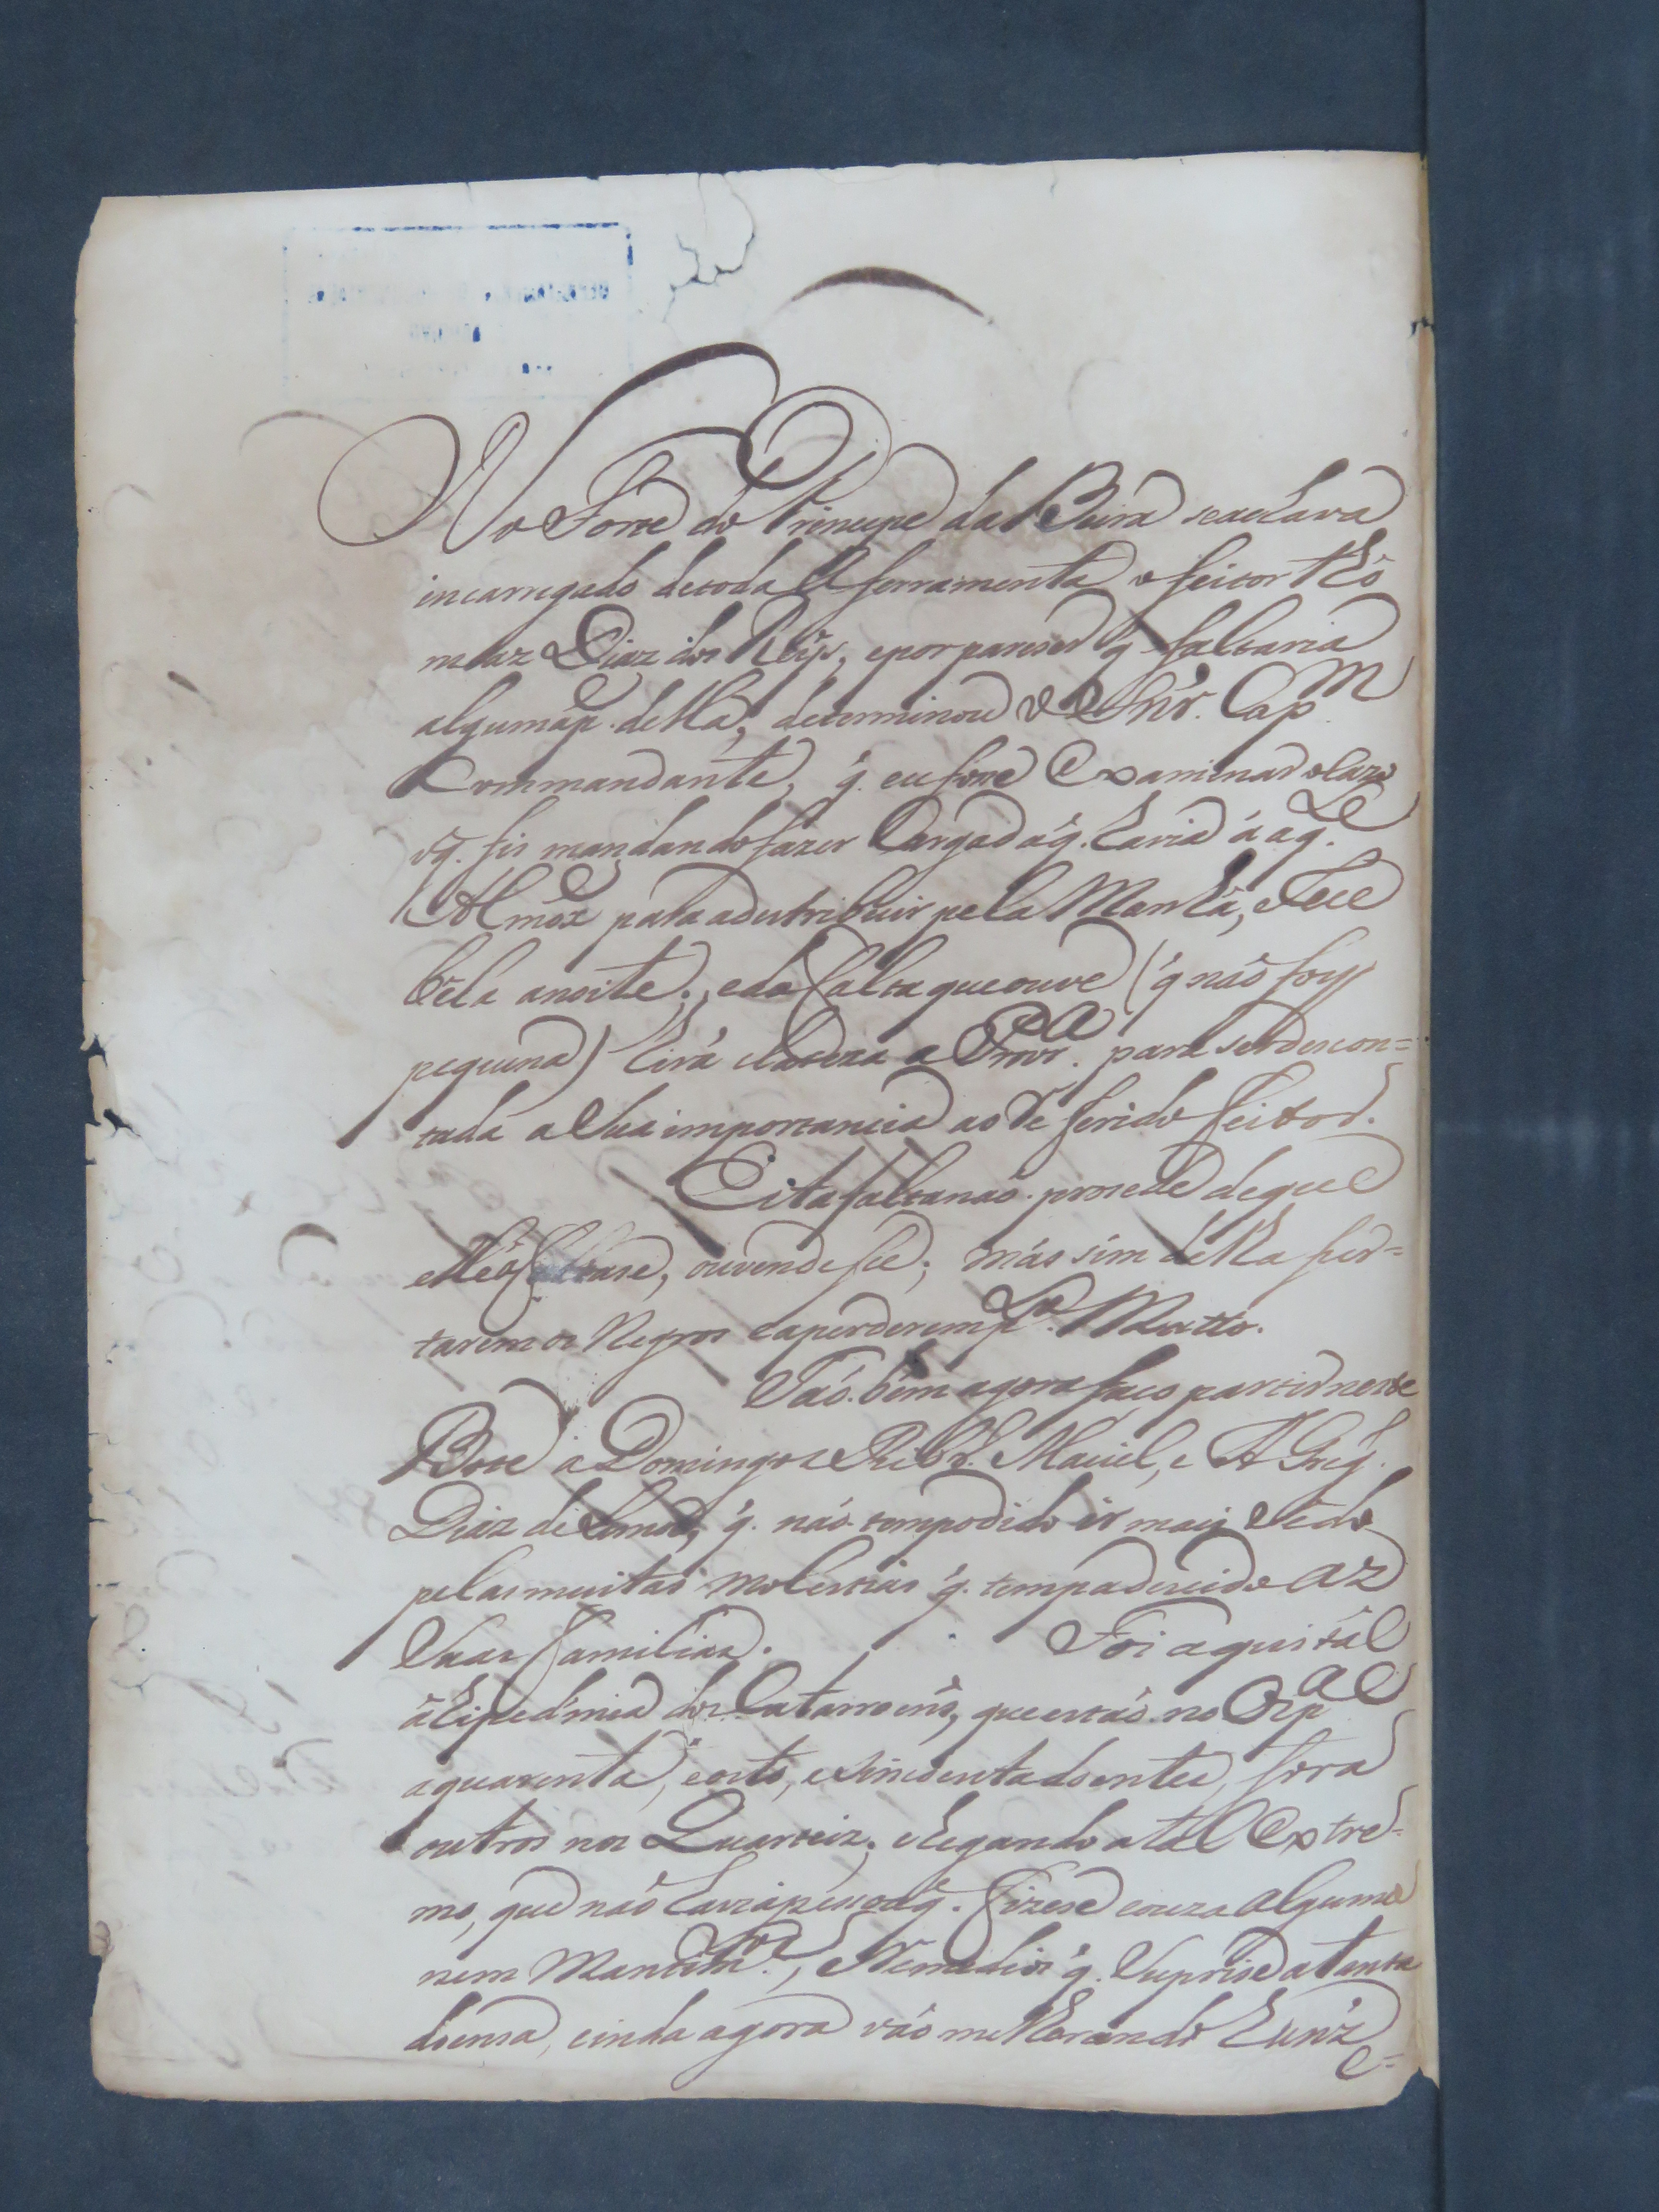 No Forte do Principe da Beira seachava
incarregado detoda a ferramenta o feitor Tho
maz Diaz dos Reys, epor pareser q̃ faltaria
alguma p.e della, determinou o Snr. Cap.m
Commandante, q̃. eu fose Examinar o cazo
oq̃. fis mandando fazer Cargad áq̃. havia á aq.le
Almox.e para adestribuir pela Manhã, e Rece
bela anoite; eda falta queouve (q̃ não foy
pequena) hirá a Prov.a para serdescon=
tada a Sua importancia ao Referido feitor.
Esta faltanaõ. prosede deque
elleá , ouvendese; más sim della fur=
tarem os Negros eaperderemp.lo Matto.
Taõ. bem agora faço partirneste
Bote á Domingos Ribr.o Maciel, e A Greg.
Diaz de Lemos, q̃. naõ tempodido ir mais Sedo
pelasmuitas molestias q̃. tempadecido az
Suas familias. Foi aqui tal
a Epedmia dos Catarroens, queestaõ no Osp.al
aquarenta, eoito, esincoentadoentes, fora
outros nos Quarteis; chegando atal Extre=
mo, que não havia pesoaq̃. fizese couza alguma
nem Mantim.tos, e Remedios q̃. Suprise atanta
doensa, einda agora vaõ melhorando huns
e=